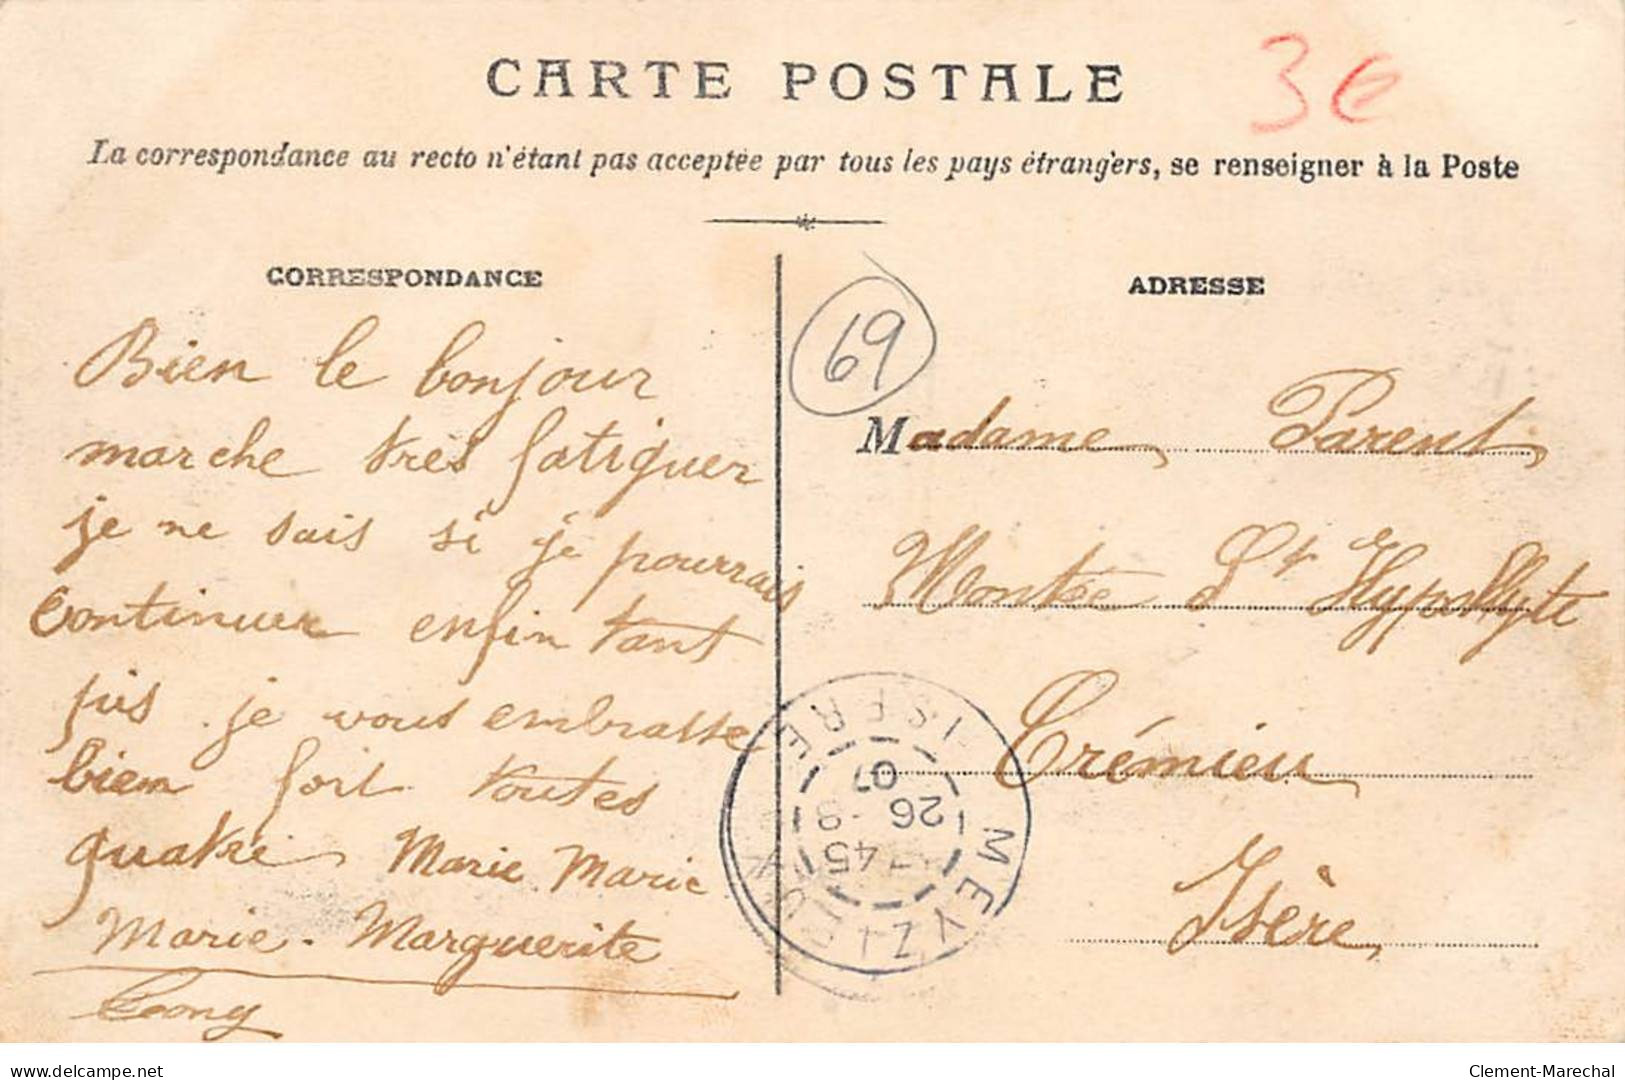 CARTE POSTALE
3€
La correspondance au recto n'étant pas acceptée par tous les pays étrangers, se renseigner à la Poste
CORRESPONDANCE
Bien le bonjour
marche très fatiguer
je ne sais si je pourrais
continuer enfin tant
pis je vous embrasse
bien fort toutes
quatre Marie Marie
Marie. Marguerite
69
ADRESSE
Madame Parent
Montée St Hypollyte
Crémieu
Isère
MEYZIEUX
ISERE
7 45
26 -9
07
Clement-Marechal